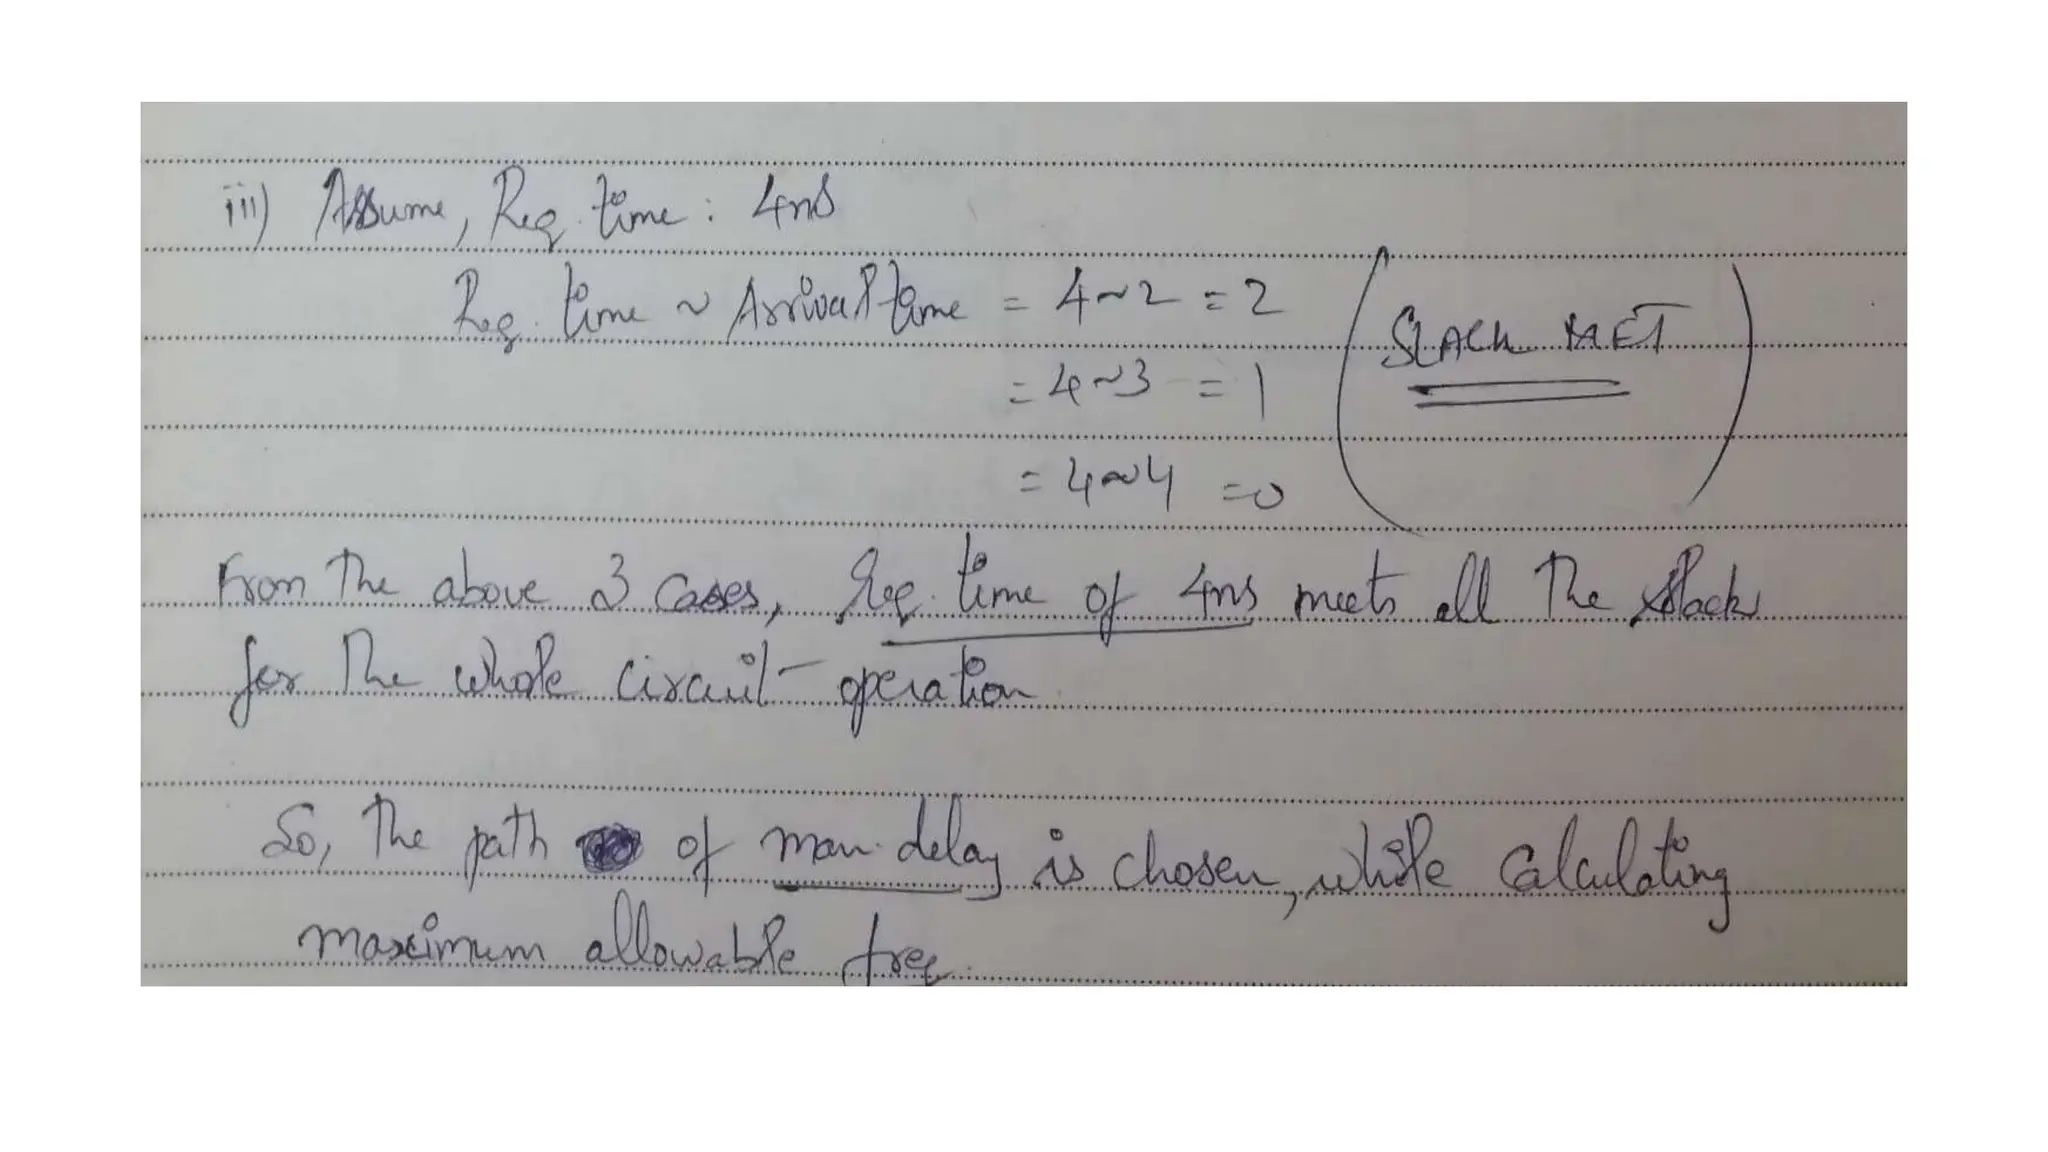 iii) Assume, Req. time : 4ns
Req. time ~ Arrival time = 4~2 = 2
SLACK MET
= 4~3 = 1
= 4~4 = 0
From the above 3 cases, Req. time of 4ns meets all the slack
for the whole circuit operation.
So, the path of max. delay is chosen, while calculating
maximum allowable freq.